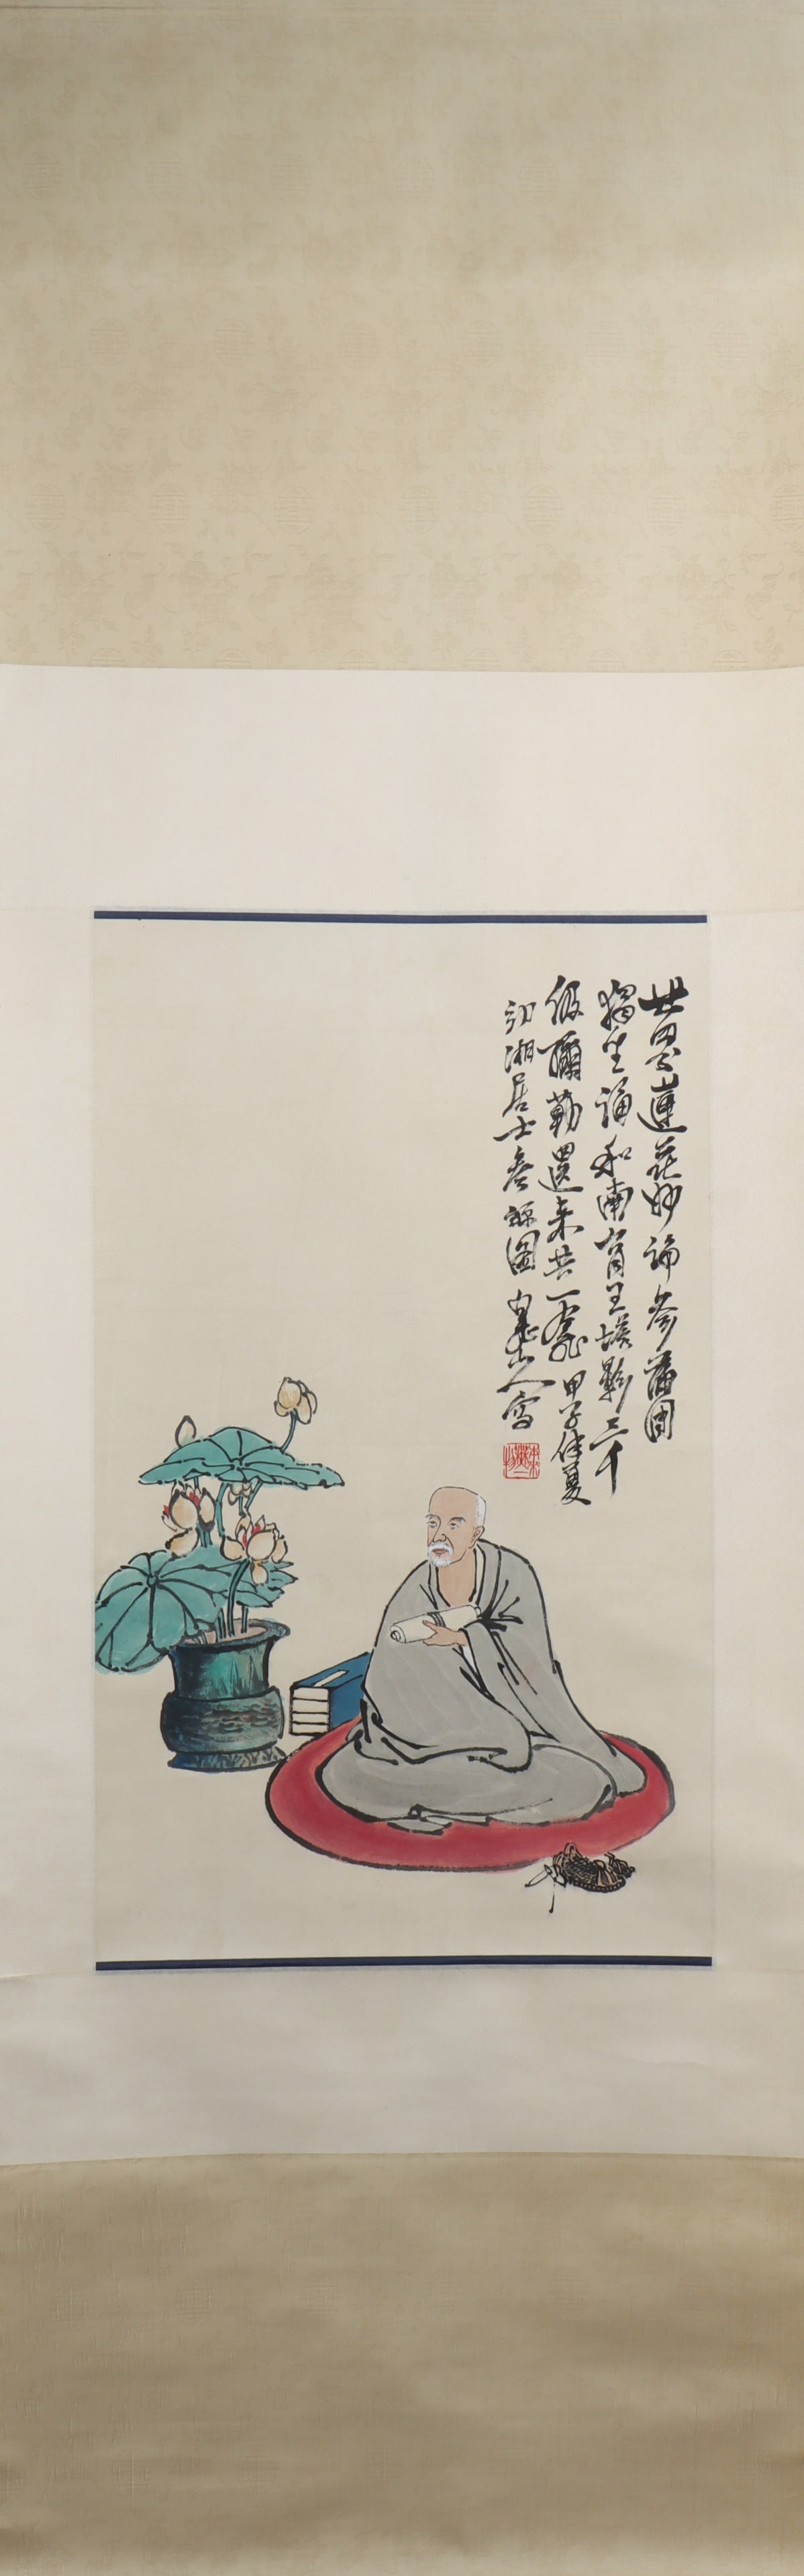 世界蓮花妙諦參蒲團
獨坐誦和南育王塔影三千
級彌勒還來共一龕甲子休夏
引湘居士參禪圖 白龍山人寫